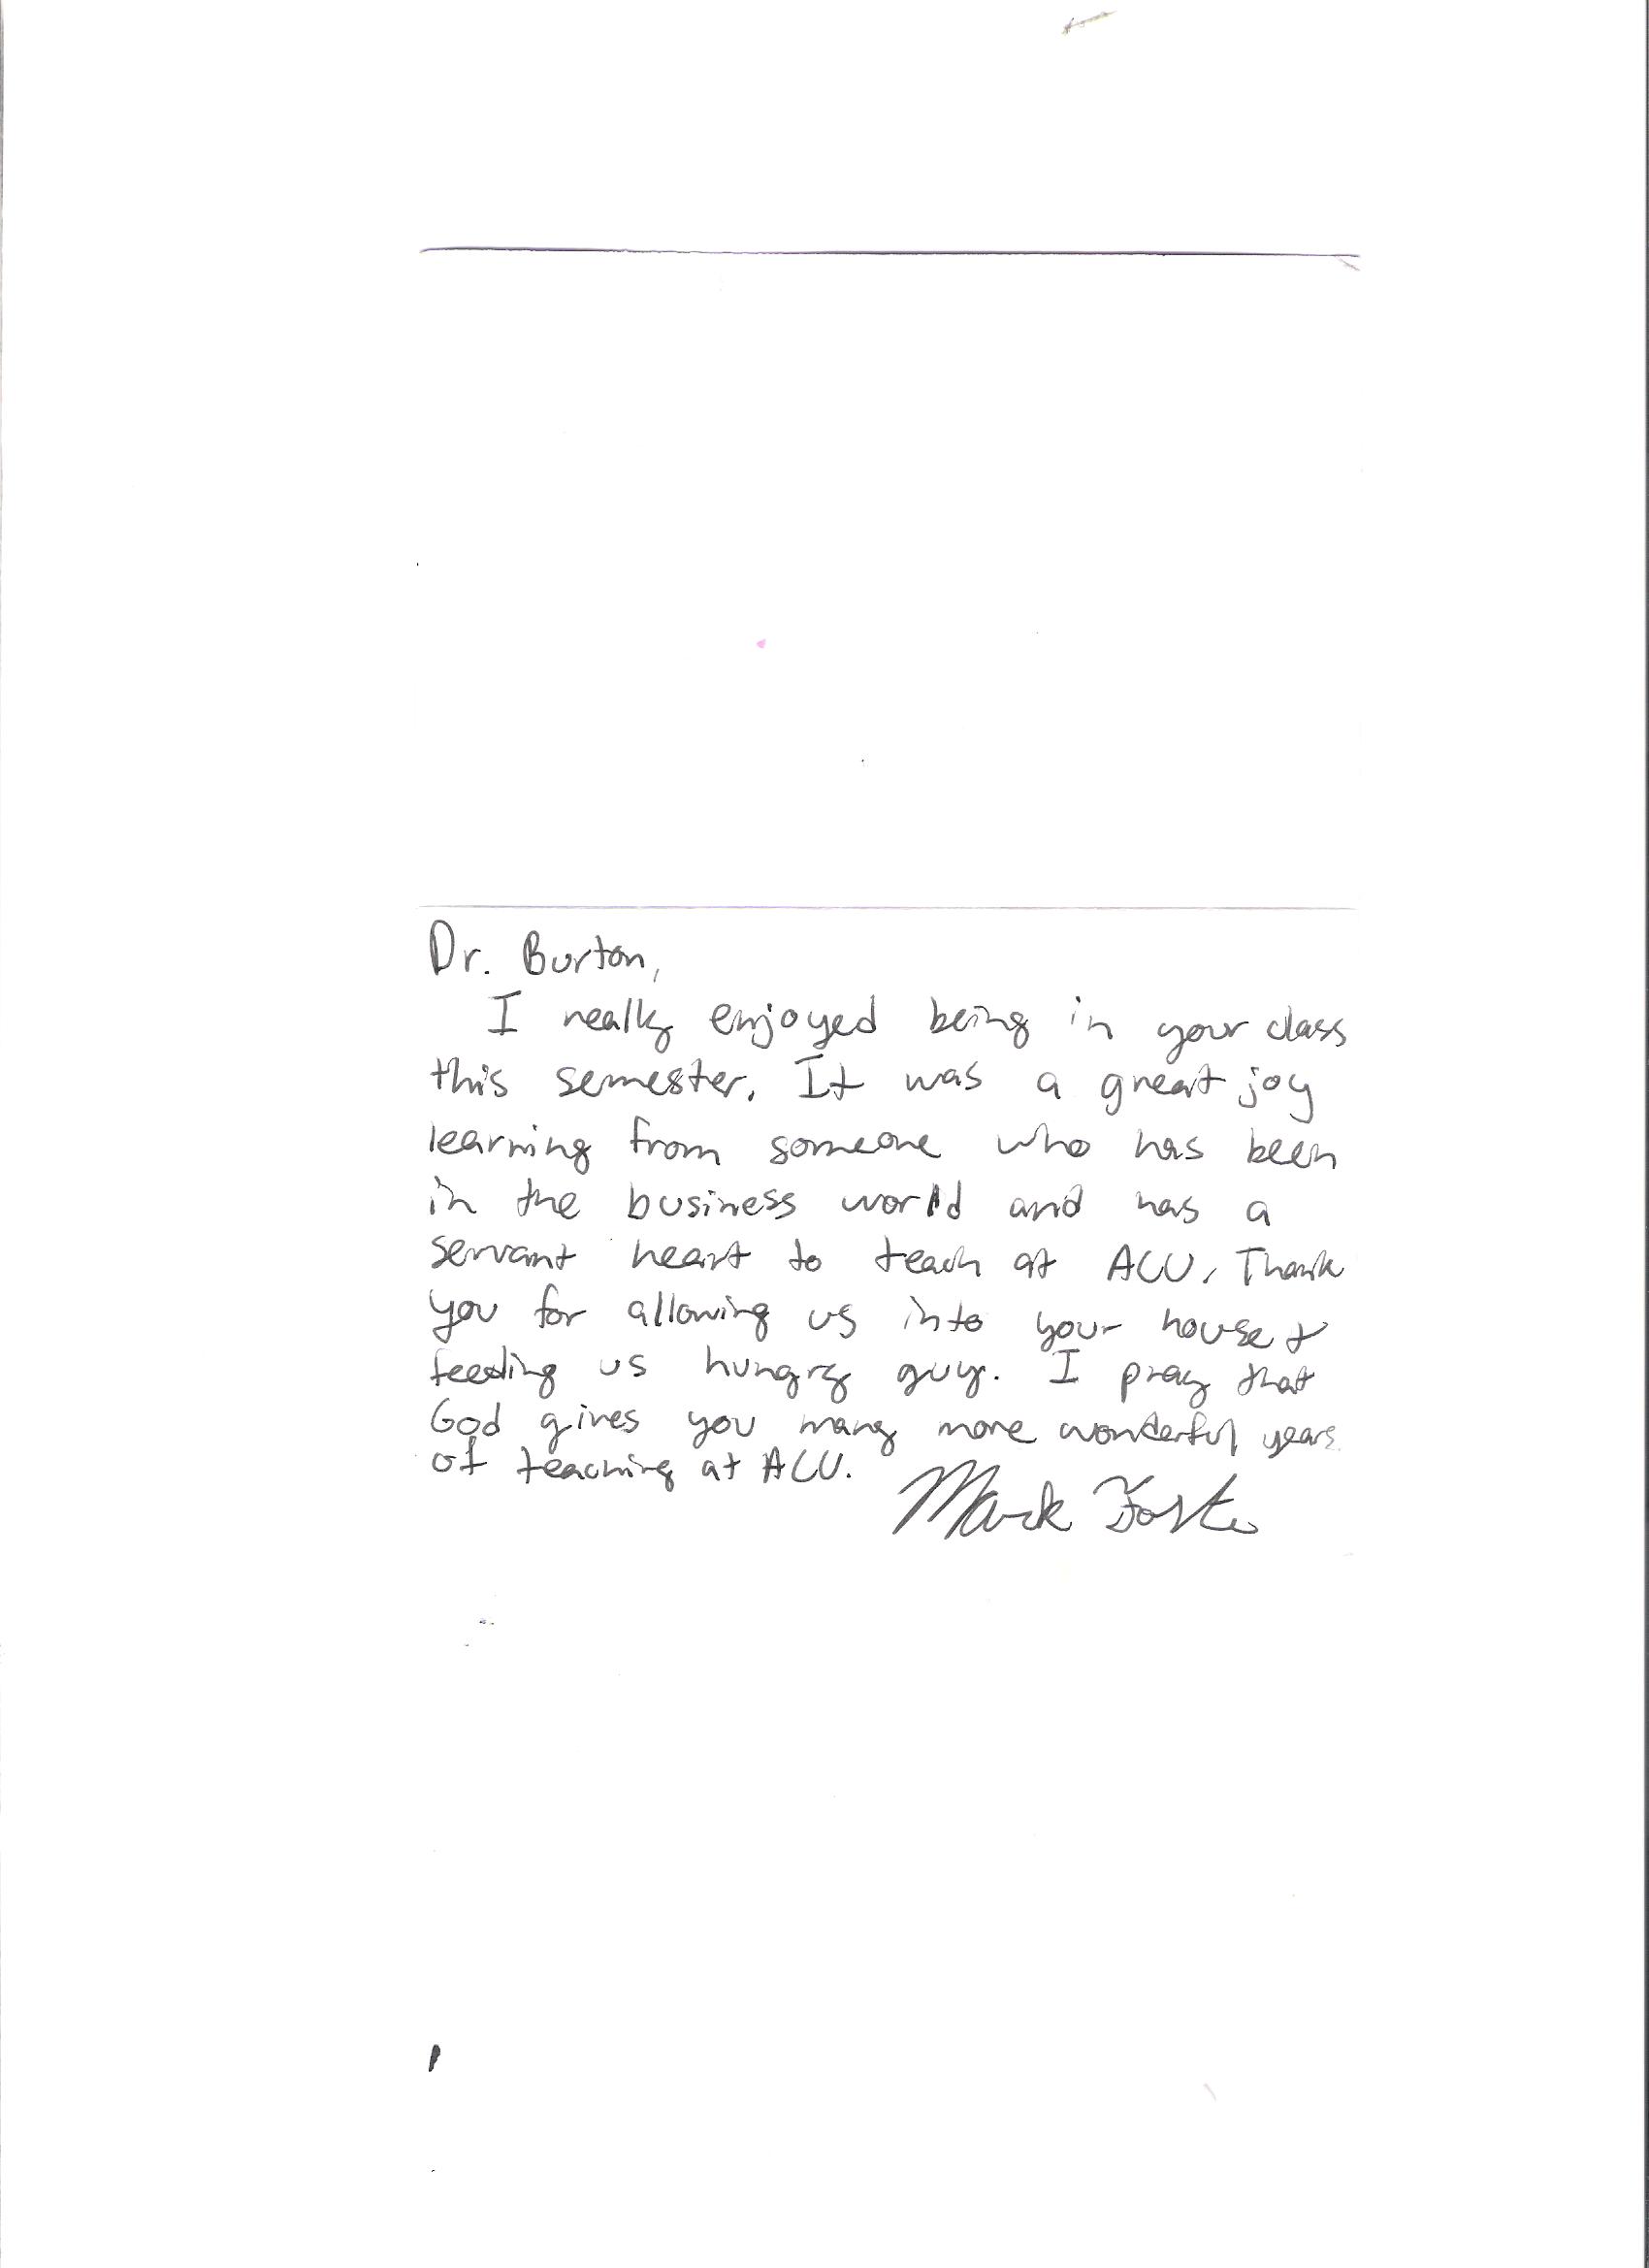 Dr. Burton,
I really enjoyed being in your class
this semester. It was a great joy
learning from someone who has been
in the business world and has a
servant heart to teach at ACU. Thank
you for allowing us into your house &
feeding us hungry guy. I pray that
God gives you many more wonderful years
of teaching at ACU.
Mark Foster